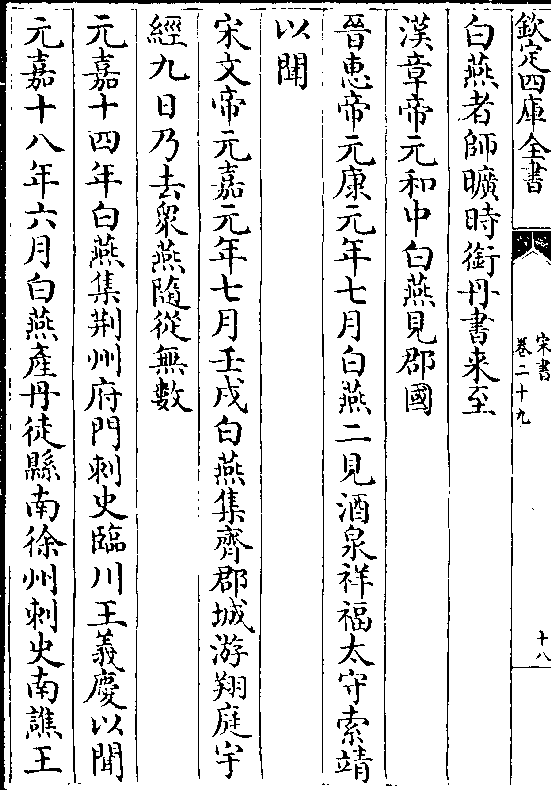 欽定四庫全書
宋書
卷二十九
十八
白燕者師曠時銜丹書来至
漢章帝元和中白燕見郡國
晉惠帝元康元年七月白燕二見酒泉祥福太守索靖
以聞
宋文帝元嘉元年七月壬戌白燕集齊郡城游翔庭宇
經九日乃去衆燕隨從無數
元嘉十四年白燕集荆州府門刺史臨川王義慶以聞
元嘉十八年六月白燕產丹徒縣南徐州刺史南譙王